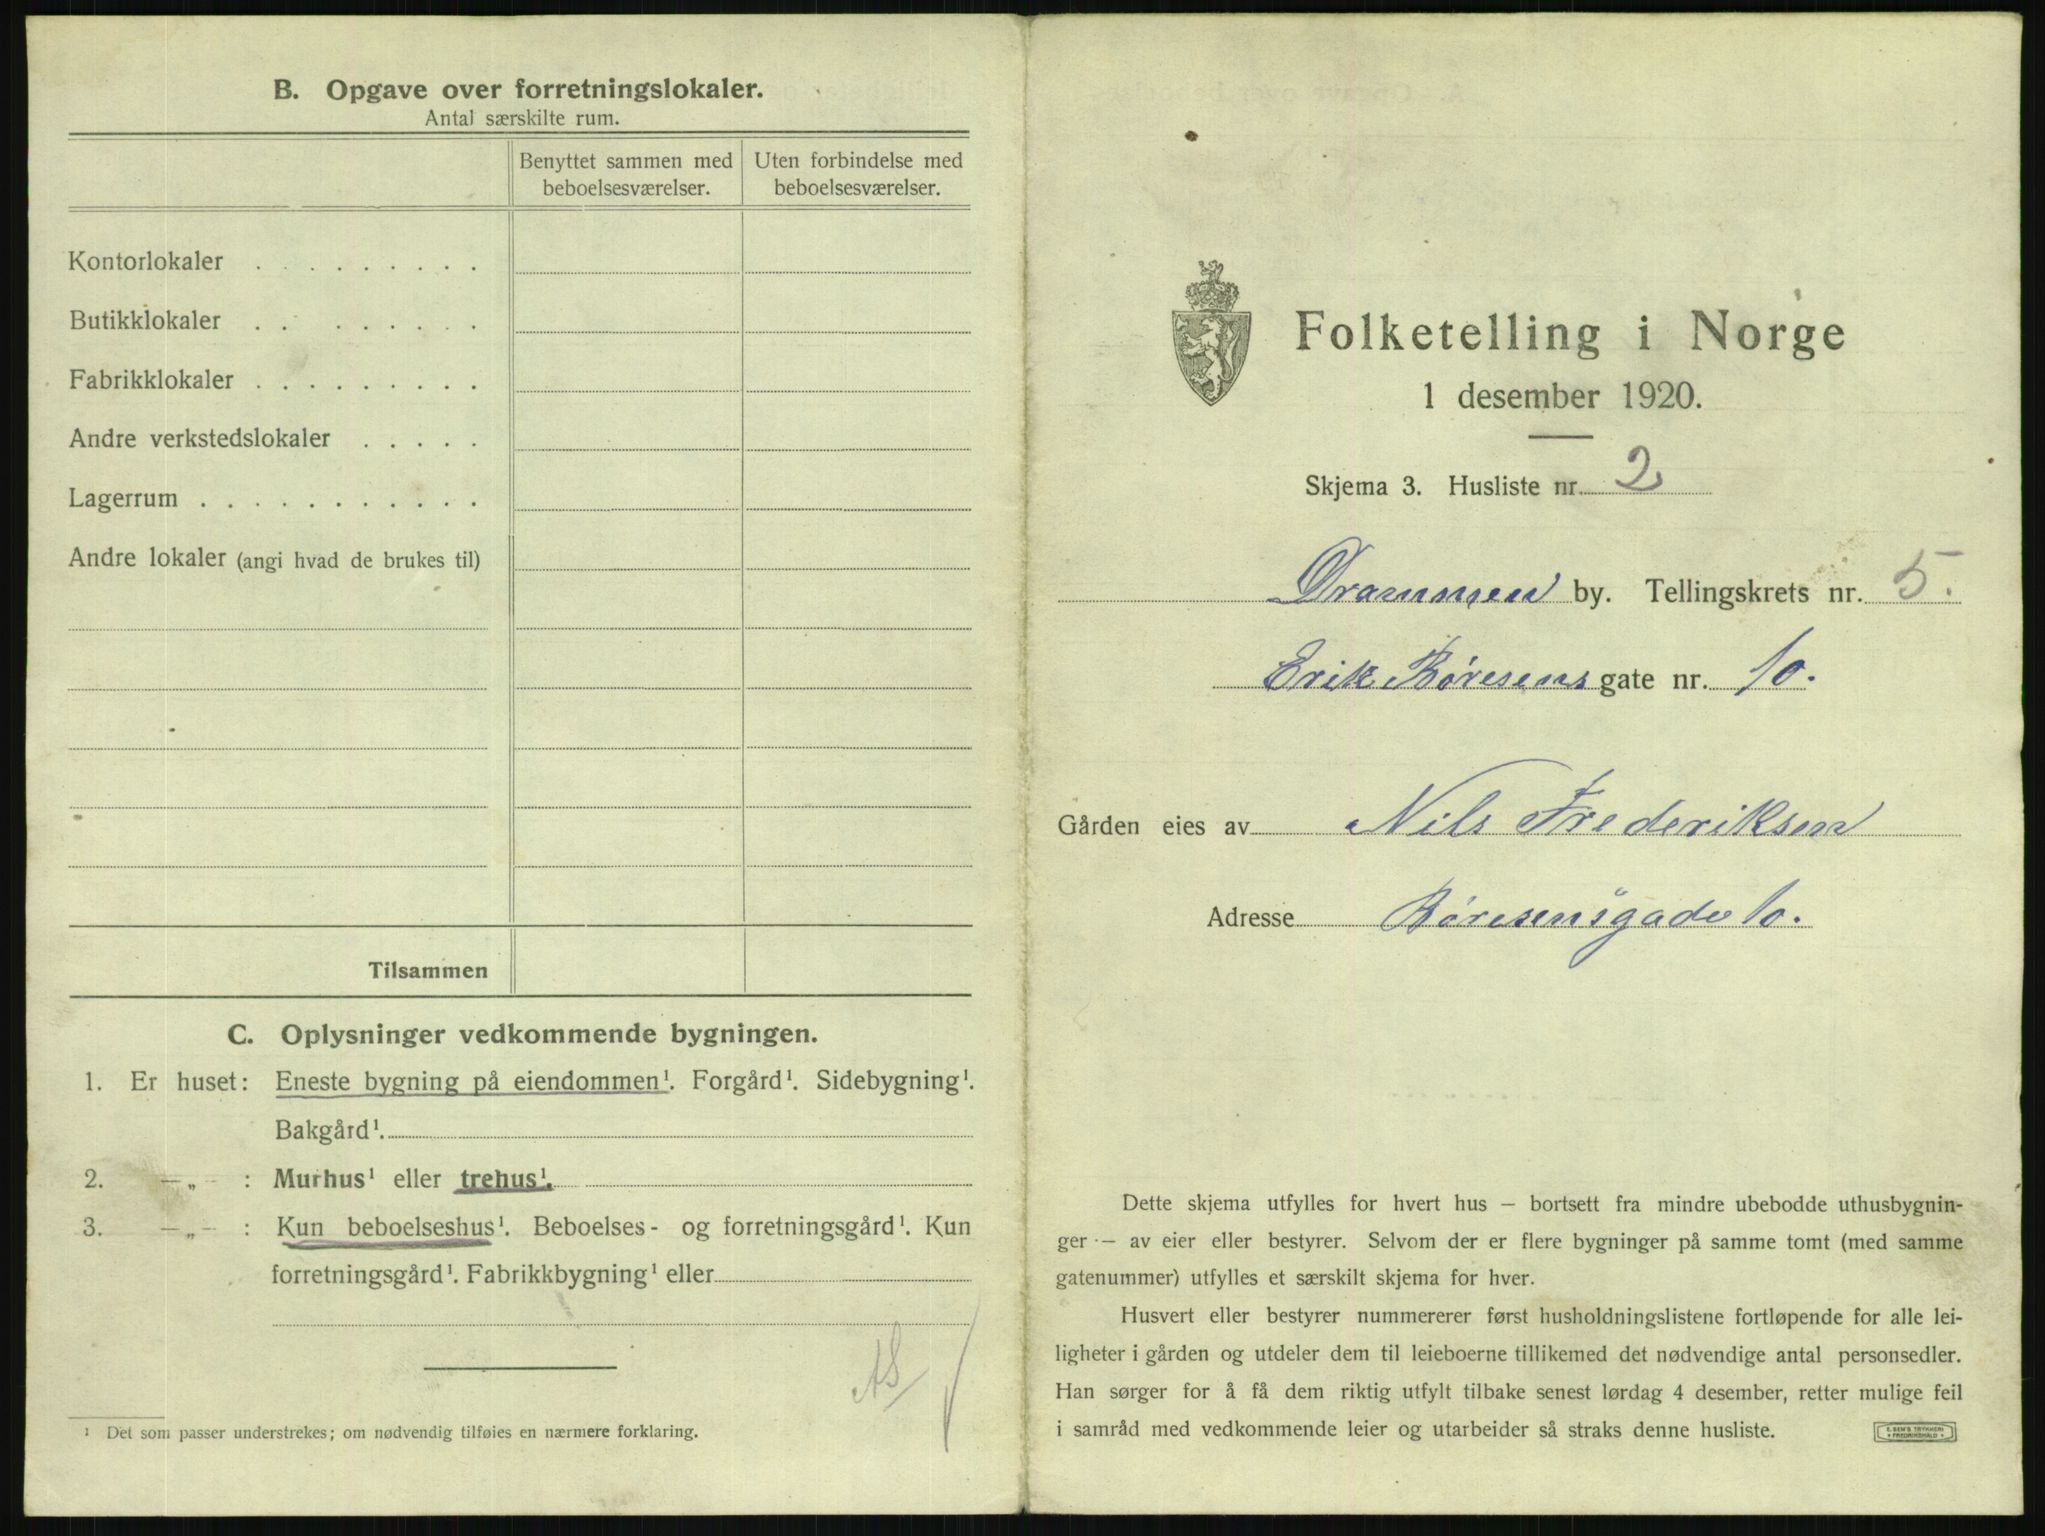 B. Opgave over forretningslokaler.
Antal særskilte rum.
Benyttet sammen med beboelsesværelser.
Uten forbindelse med beboelsesværelser.
Kontorlokaler . . . . . . . . .
Butikklokaler . . . . . . . .
Fabrikklokaler . . . . . . . . .
Andre verkstedslokaler . . . . .
Lagerrum . . . . . . . . . . .
Andre lokaler (angi hvad de brukes til)
Tilsammen
C. Oplysninger vedkommende bygningen.
1. Er huset: Eneste bygning på eiendommen¹. Forgård¹. Sidebygning¹.
Bakgård¹.
2. —„— : Murhus¹ eller trehus¹.
3. —„— : Kun beboelseshus¹. Beboelses- og forretningsgård¹. Kun
forretningsgård¹. Fabrikkbygning¹ eller
¹ Det som passer understrekes; om nødvendig tilføies en nærmere forklaring.
Folketelling i Norge
1 desember 1920.
Skjema 3. Husliste nr. 2
Drammen by. Tellingskrets nr. 5.
Erik Børesens gate nr. 10.
Gården eies av Nils Frederiksen
Adresse Børesensgade 10.
Dette skjema utfylles for hvert hus — bortsett fra mindre ubebodde uthusbygnin-
ger — av eier eller bestyrer. Selvom der er flere bygninger på samme tomt (med samme
gatenummer) utfylles et særskilt skjema for hver.
Husvert eller bestyrer nummererer først husholdningslistene fortløpende for alle lei-
ligheter i gården og utdeler dem til leieboerne tillikemed det nødvendige antal personsedler.
Han sørger for å få dem riktig utfylt tilbake senest lørdag 4 desember, retter mulige feil
i samråd med vedkommende leier og utarbeider så straks denne husliste.
E. SEM'S TRYKKERI
FREDRIKSHALD